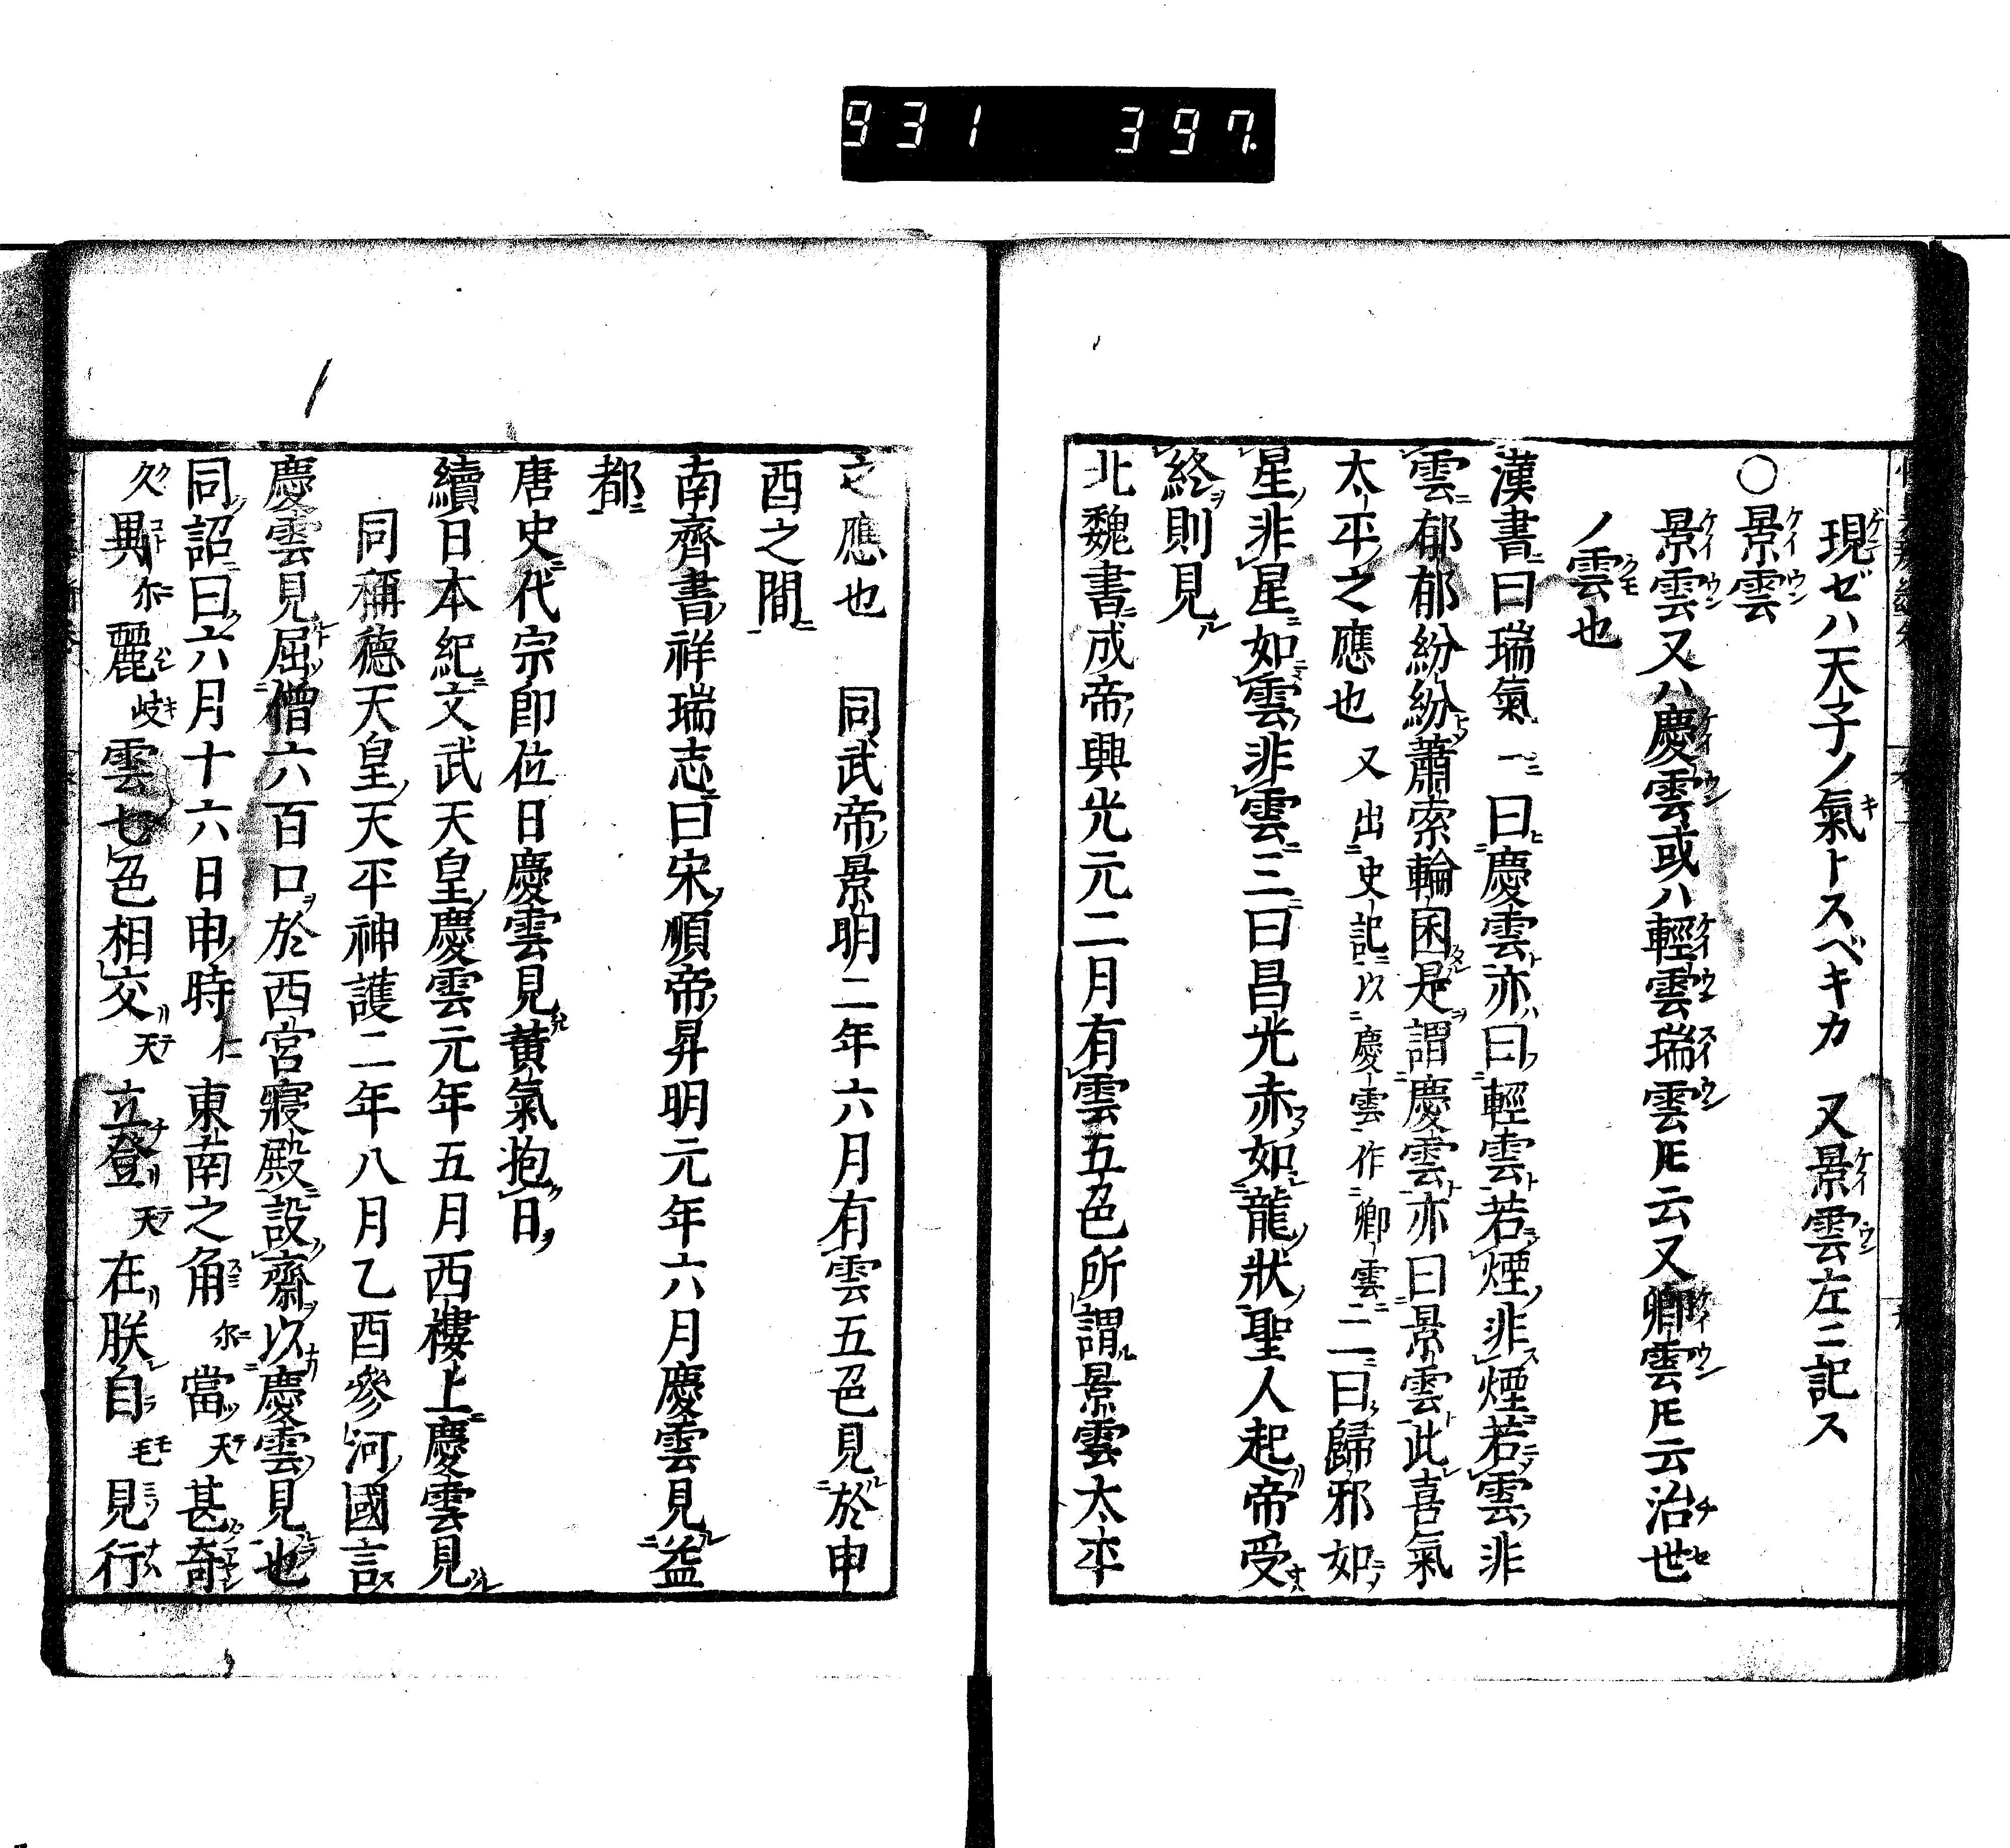 931 397
現ゼハ天子ノ氣トスベキカ 又景雲左ニ記ス
○景雲
景雲又ハ慶雲或ハ輕雲瑞雲㞮云又卿雲㞮云治世
ノ雲也
漢書曰瑞氣一曰慶雲亦曰輕雲若煙非煙若雲非
雲郁郁紛紛蕭索輪囷是謂慶雲亦曰景雲此喜氣
太平之應也 又出史記以慶雲作卿雲 二曰歸邪如
星非星如雲非雲三曰昌光赤如龍狀聖人起帝受
終則見
北魏書成帝興光元二月有雲五色所謂景雲太平
之應也 同武帝景明二年六月有雲五色見於申
酉之間
南齊書祥瑞志曰宋順帝昇明元年六月慶雲見益
都
唐史代宗卽位日慶雲見黃氣抱日
續日本紀文武天皇慶雲元年五月西樓上慶雲見
同稱德天皇天平神護二年八月乙酉參河國言
慶雲見屈僧六百口於西宮寢殿設齋以慶雲見也
同詔曰六月十六日申時仁東南之角尓當天甚奇
久異尓麗岐雲七色相交天立登天在朕自毛見行